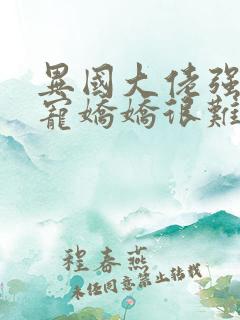 異國大佬强
寵嬌嬌很難
程春燕
未經同意禁止轉載